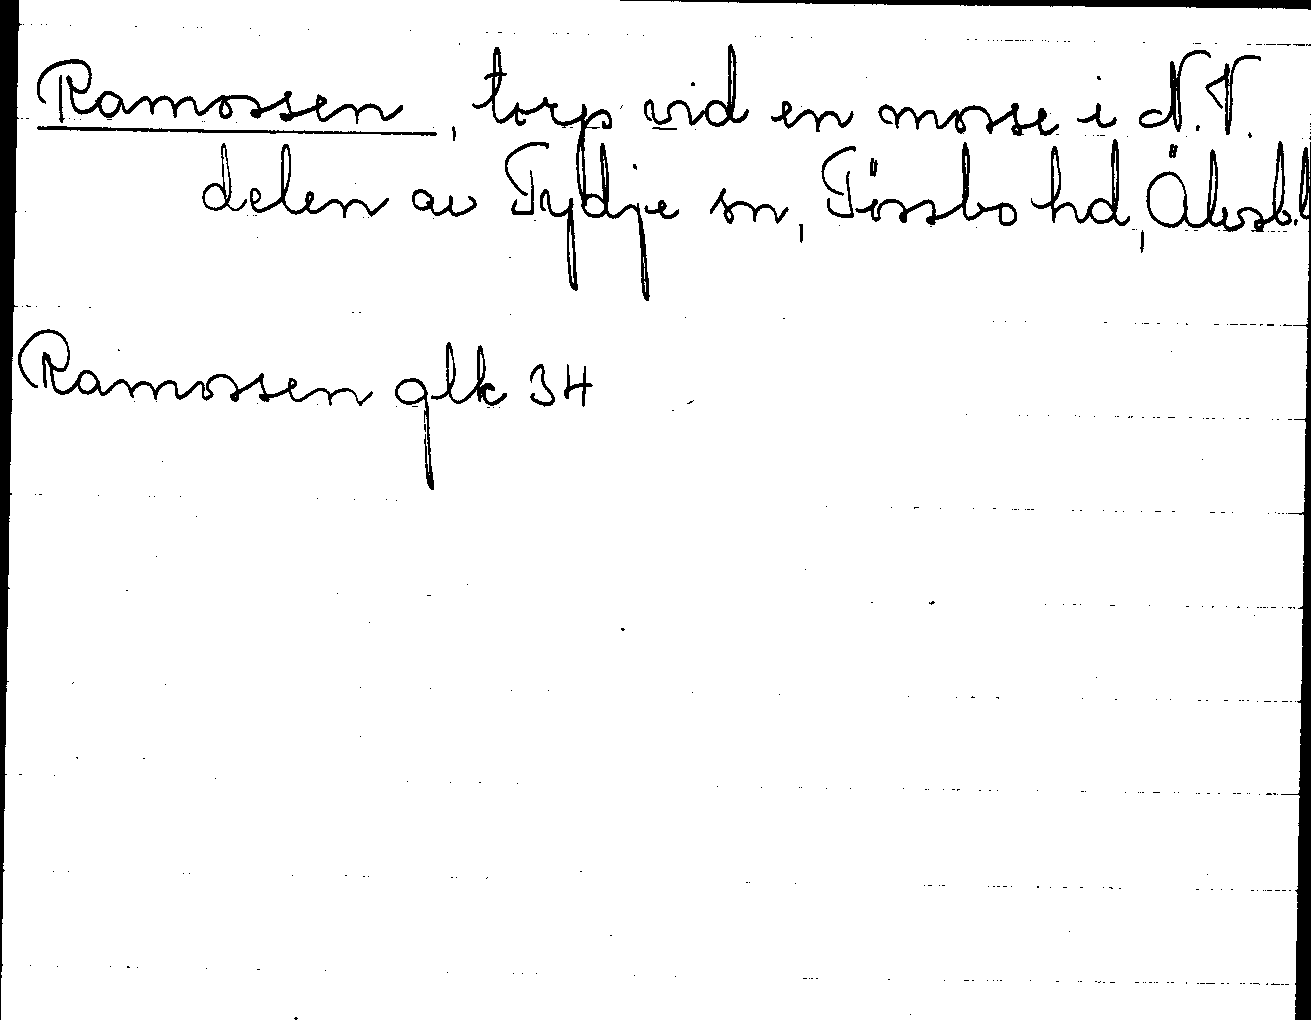 Ramossen, torp vid en mosse i N.V.
delen av Tydje sn, Tössbo hd, Älvsb.l
Ramossen glk 34